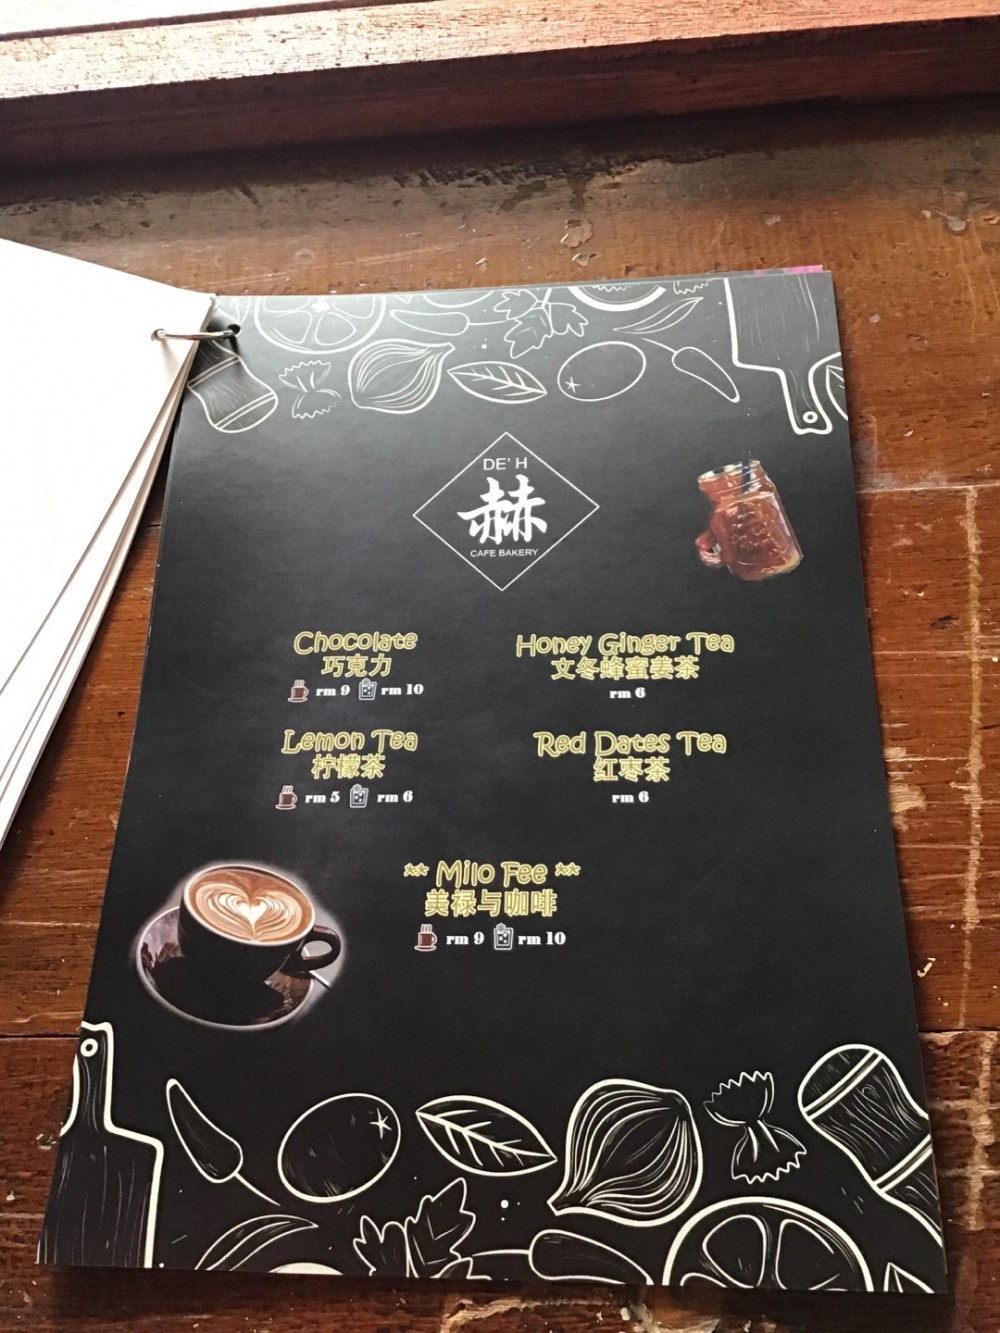 DE' H
赫
CAFE BAKERY
Chocolate
巧克力
rm 9 rm 10
Honey Ginger Tea
文冬蜂蜜姜茶
rm 6
Lemon Tea
柠檬茶
rm 5 rm 6
Red Dates Tea
红枣茶
rm 6
** Milo Fee **
美禄与咖啡
rm 9 rm 10